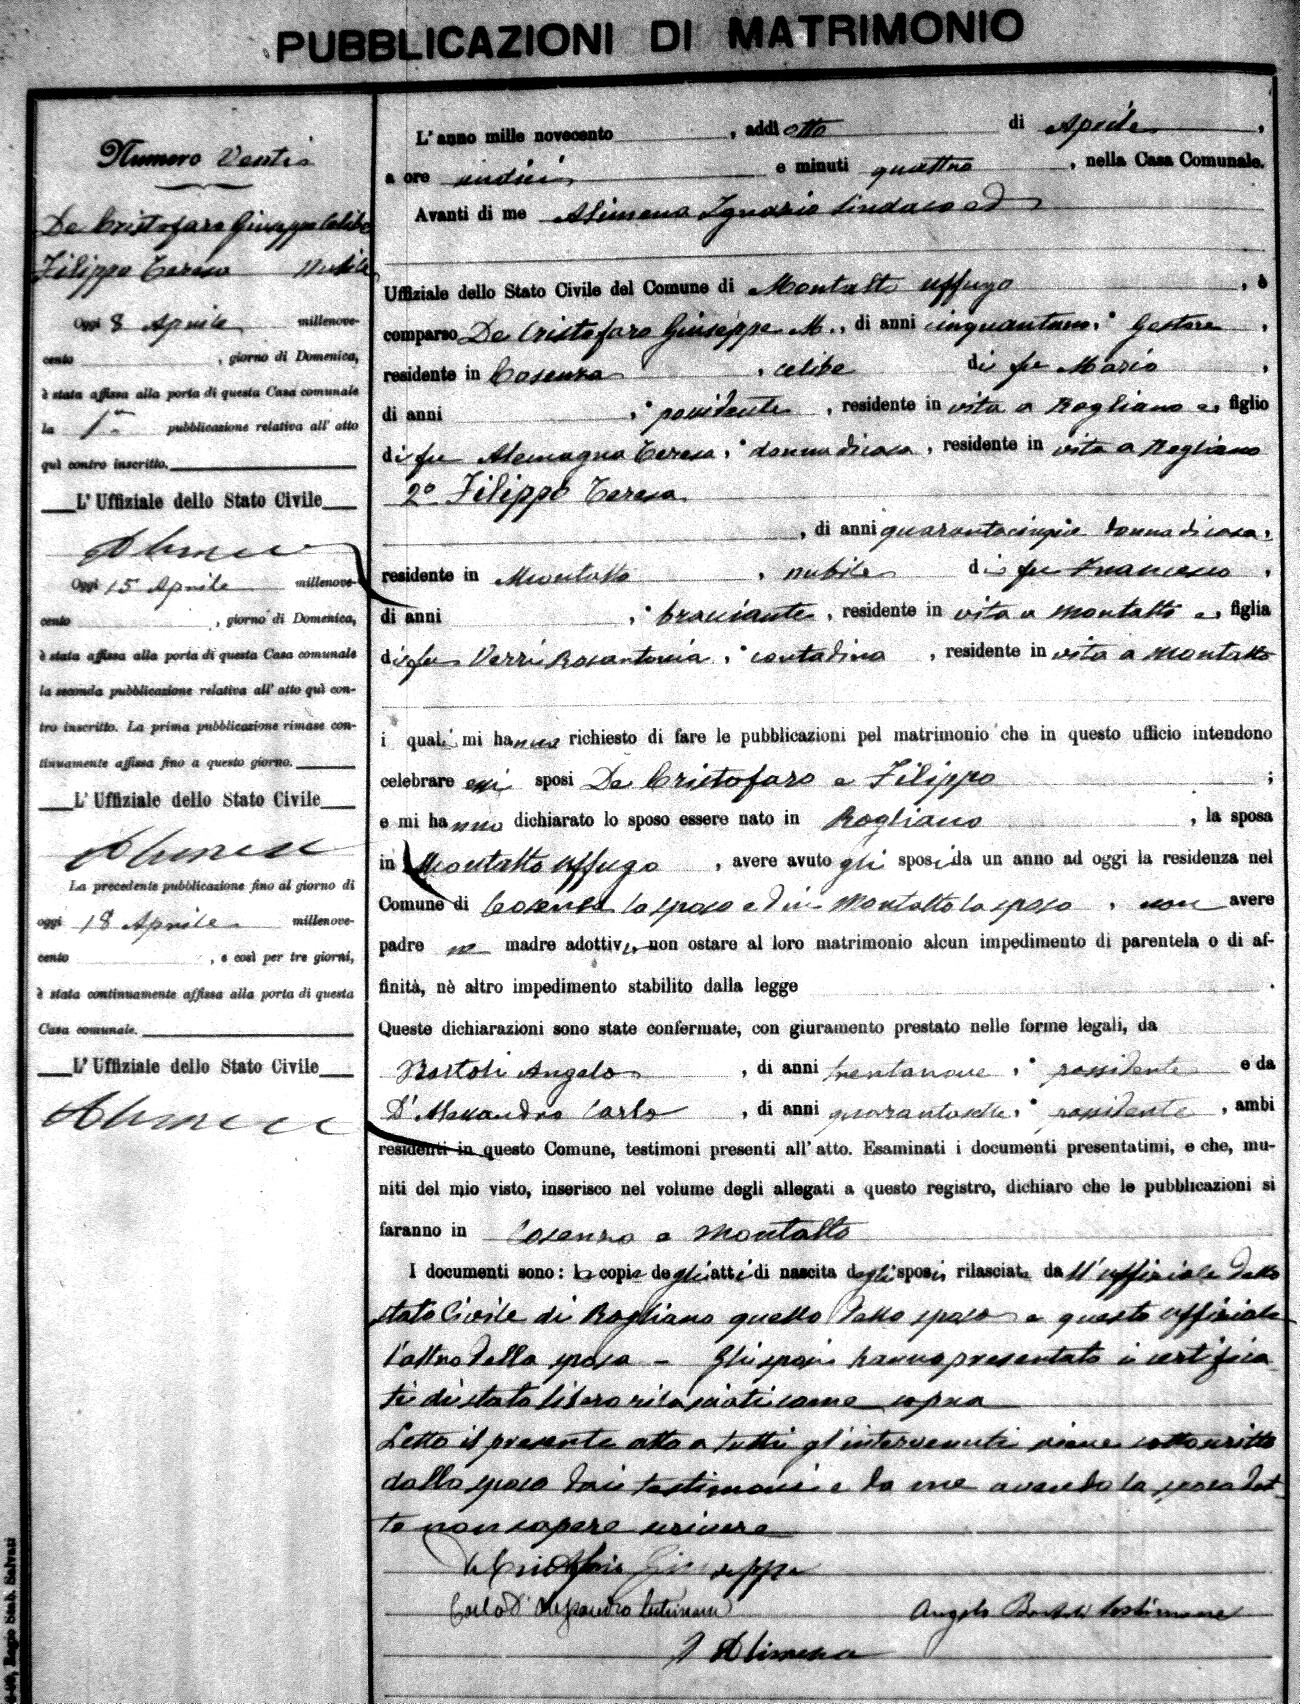 PUBBLICAZIONI DI MATRIMONIO
Numero Venti
De Cristofaro Giuseppe Celibe
Filippo Teresa Nubile
Oggi 8 Aprile millenove-
cento , giorno di Domenica,
è stata affissa alla porta di questa Casa comunale
la 1a pubblicazione relativa all' atto
quì contro inscritto.
L' Uffiziale dello Stato Civile
Alimena
Oggi 15 Aprile millenove-
cento , giorno di Domenica,
è stata affissa alla porta di questa Casa comunale
la seconda pubblicazione relativa all' atto quì con-
tro inscritto. La prima pubblicazione rimase con-
tinuamente affissa fino a questo giorno.
L' Uffiziale dello Stato Civile
Alimena
La precedente pubblicazione fino al giorno di
oggi 18 Aprile millenove-
cento , e così per tre giorni,
è stata continuamente affissa alla porta di questa
Casa comunale.
L' Uffiziale dello Stato Civile
Alimena
L' anno mille novecento , addì otto di Aprile ,
a ore undici e minuti quattro , nella Casa Comunale.
Avanti di me Alimena Ignazio Sindaco ed
Uffiziale dello Stato Civile del Comune di Montalto Uffugo , è
comparso De Cristofaro Giuseppe M. , di anni cinquantuno, Gestore ,
residente in Cosenza , celibe di fu Mario ,
di anni , possidente , residente in vita a Rogliano e, figlio
di fu Alemagna Teresa , donna di casa , residente in vita a Rogliano
2° Filippo Teresa
, di anni quarantacinque donna di casa,
residente in Montalto , nubile di fu Francesco ,
di anni , bracciante , residente in vita a Montalto e, figlia
di fu Verri Rosantonia , contadina , residente in vita a Montalto
i quali mi hanno richiesto di fare le pubblicazioni pel matrimonio che in questo ufficio intendono
celebrare essi sposi De Cristofaro e Filippo ;
e mi hanno dichiarato lo sposo essere nato in Rogliano , la sposa
in Montalto Uffugo , avere avuto gli sposi da un anno ad oggi la residenza nel
Comune di Cosenza lo sposo ed in Montalto la sposa , non avere
padre ne madre adottivi, non ostare al loro matrimonio alcun impedimento di parentela o di af-
finità, nè altro impedimento stabilito dalla legge .
Queste dichiarazioni sono state confermate, con giuramento prestato nelle forme legali, da
Bartoli Angelo , di anni trentanove , possidente e da
D'Alessandro Carlo , di anni quarantasette , possidente , ambi
residenti in questo Comune, testimoni presenti all' atto. Esaminati i documenti presentatimi, e che, mu-
niti del mio visto, inserisco nel volume degli allegati a questo registro, dichiaro che le pubblicazioni si
faranno in Cosenza e Montalto
I documenti sono: le copie degli atti di nascita degli sposi rilasciate da ll'uffiziale dello
stato Civile di Rogliano quello dello sposo e questo uffiziale
l'altro della sposa - Gli sposi hanno presentato i certifica
ti di stato libero rilasciati come sopra
Letto il presente atto a tutti gl'intervenuti viene sottoscritto
dallo sposo dai testimoni e da me avendo la sposa det-
to non sapere scrivere
De Cristofaro Giuseppe
Carlo D'Alessandro testimone Angelo Bartoli testimone
I Alimena
Stab. Salvati